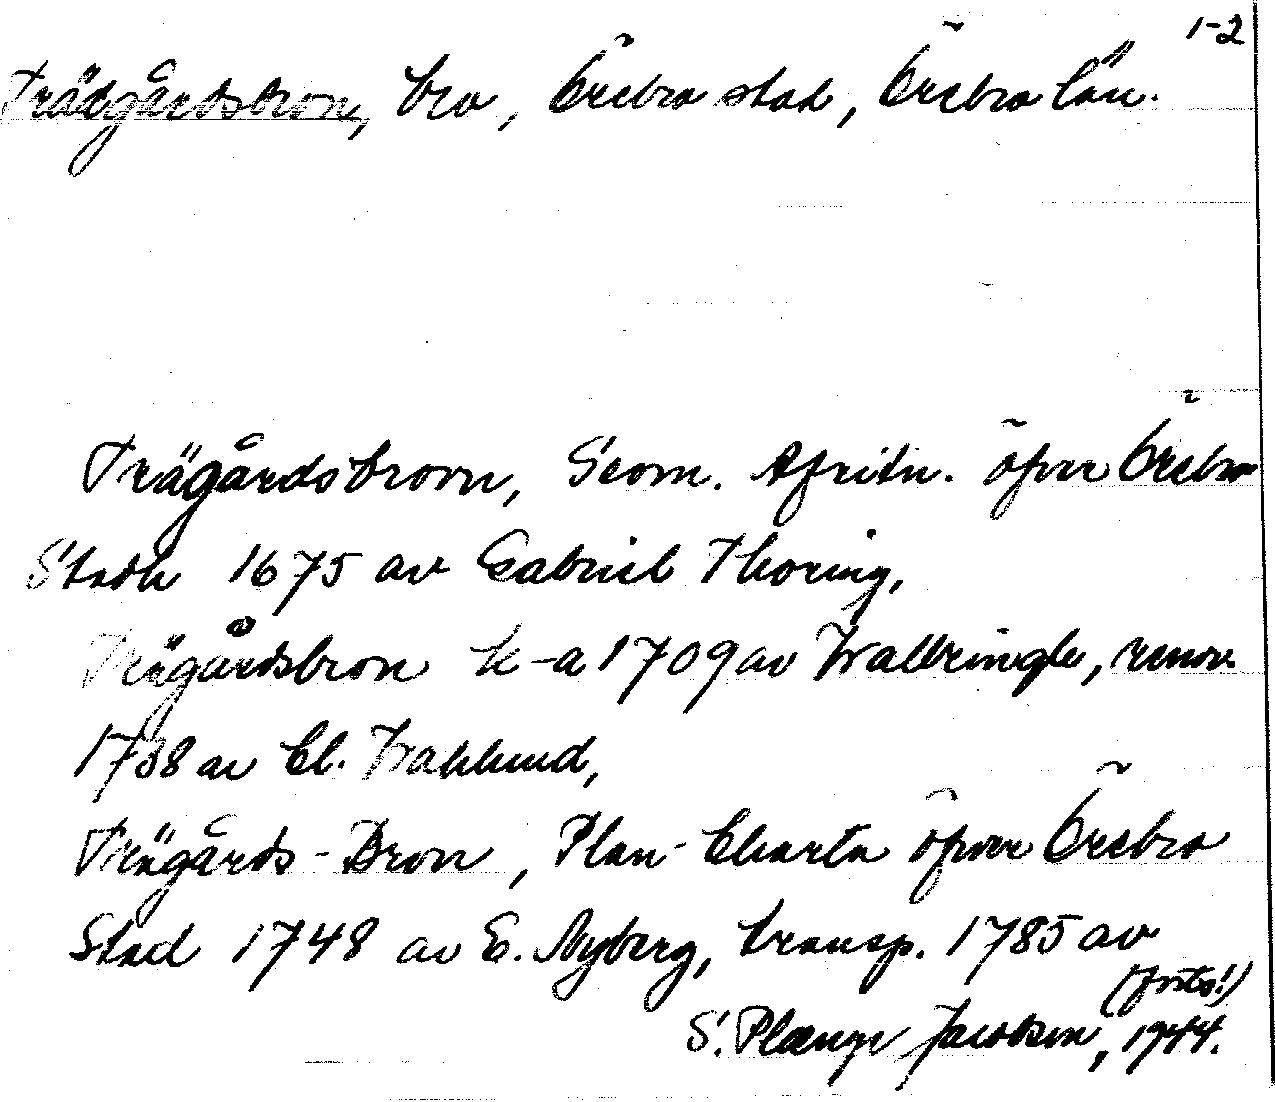 1-2
Trädgårdsbron, bro, Örebro stad, Örebro län.
Trägårdsbronn, Geom. Afritn. öfver Örebro
Stadh 1675 av Gabriel Thoring,
Trägårdsbron k-a 1709 av Wallringh, renov.
1738 av Cl. Wahlund,
Trägårds-Bron, Plan-Charta öfver Örebro
Stad 1748 av E. Nyberg, transp. 1785 av
(forts!)
S. Plænge Jacobson, 1944.